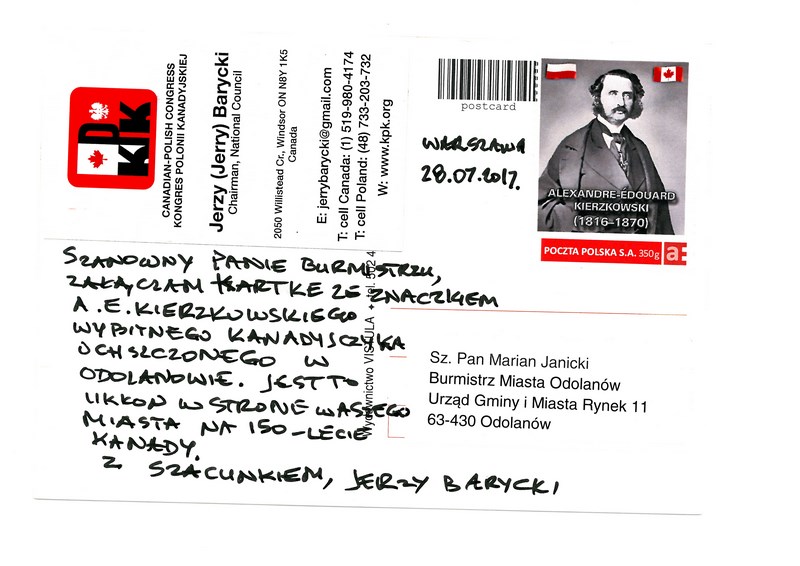 KPK
CANADIAN-POLISH CONGRESS
KONGRES POLONII KANADYJSKIEJ
Jerzy (Jerry) Barycki
Chairman, National Council
2050 Willistead Cr., Windsor ON N8Y 1K5
Canada
E: jerrybarycki@gmail.com
T: cell Canada: (1) 519-980-4174
T: cell Poland: (48) 733-203-732
W: www.kpk.org
postcard
WARSZAWA
28.07.2017.
ALEXANDRE-ÉDOUARD
KIERZKOWSKI
(1816–1870)
POCZTA POLSKA S.A. 350g a:
SZANOWNY PANIE BURMISTRZU,
ZAŁĄCZAM KARTKE ZE ZNACZKIEM
A.E. KIERZKOWSKIEGO
WYBITNEGO KANADYJCZYKA
UCHSZCZONEGO W
ODOLANOWIE. JEST TO
UKŁON W STRONE WASZEGO
MIASTA NA 150-LECIE
KANADY.
Z SZACUNKIEM, JERZY BARYCKI
Wydawnictwo VISTULA • tel. 502 4
Sz. Pan Marian Janicki
Burmistrz Miasta Odolanów
Urząd Gminy i Miasta Rynek 11
63-430 Odolanów